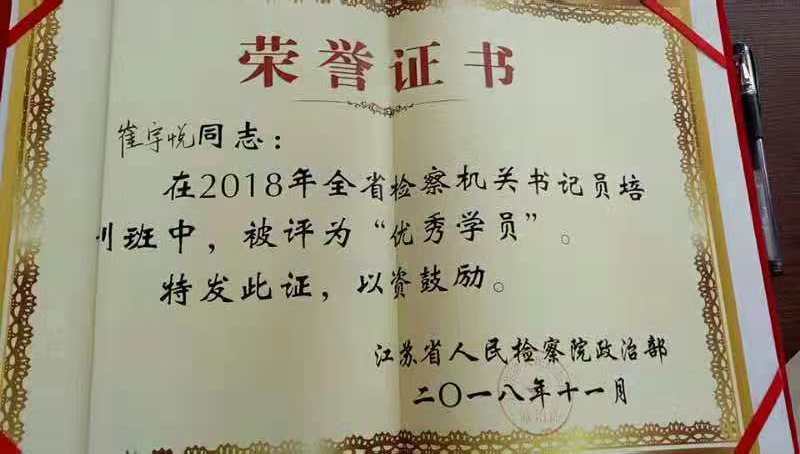 荣誉证书
崔宇悦同志：
在2018年全省检察机关书记员培
训班中，被评为“优秀学员”。
特发此证，以资鼓励。
江苏省人民检察院政治部
二〇一八年十一月